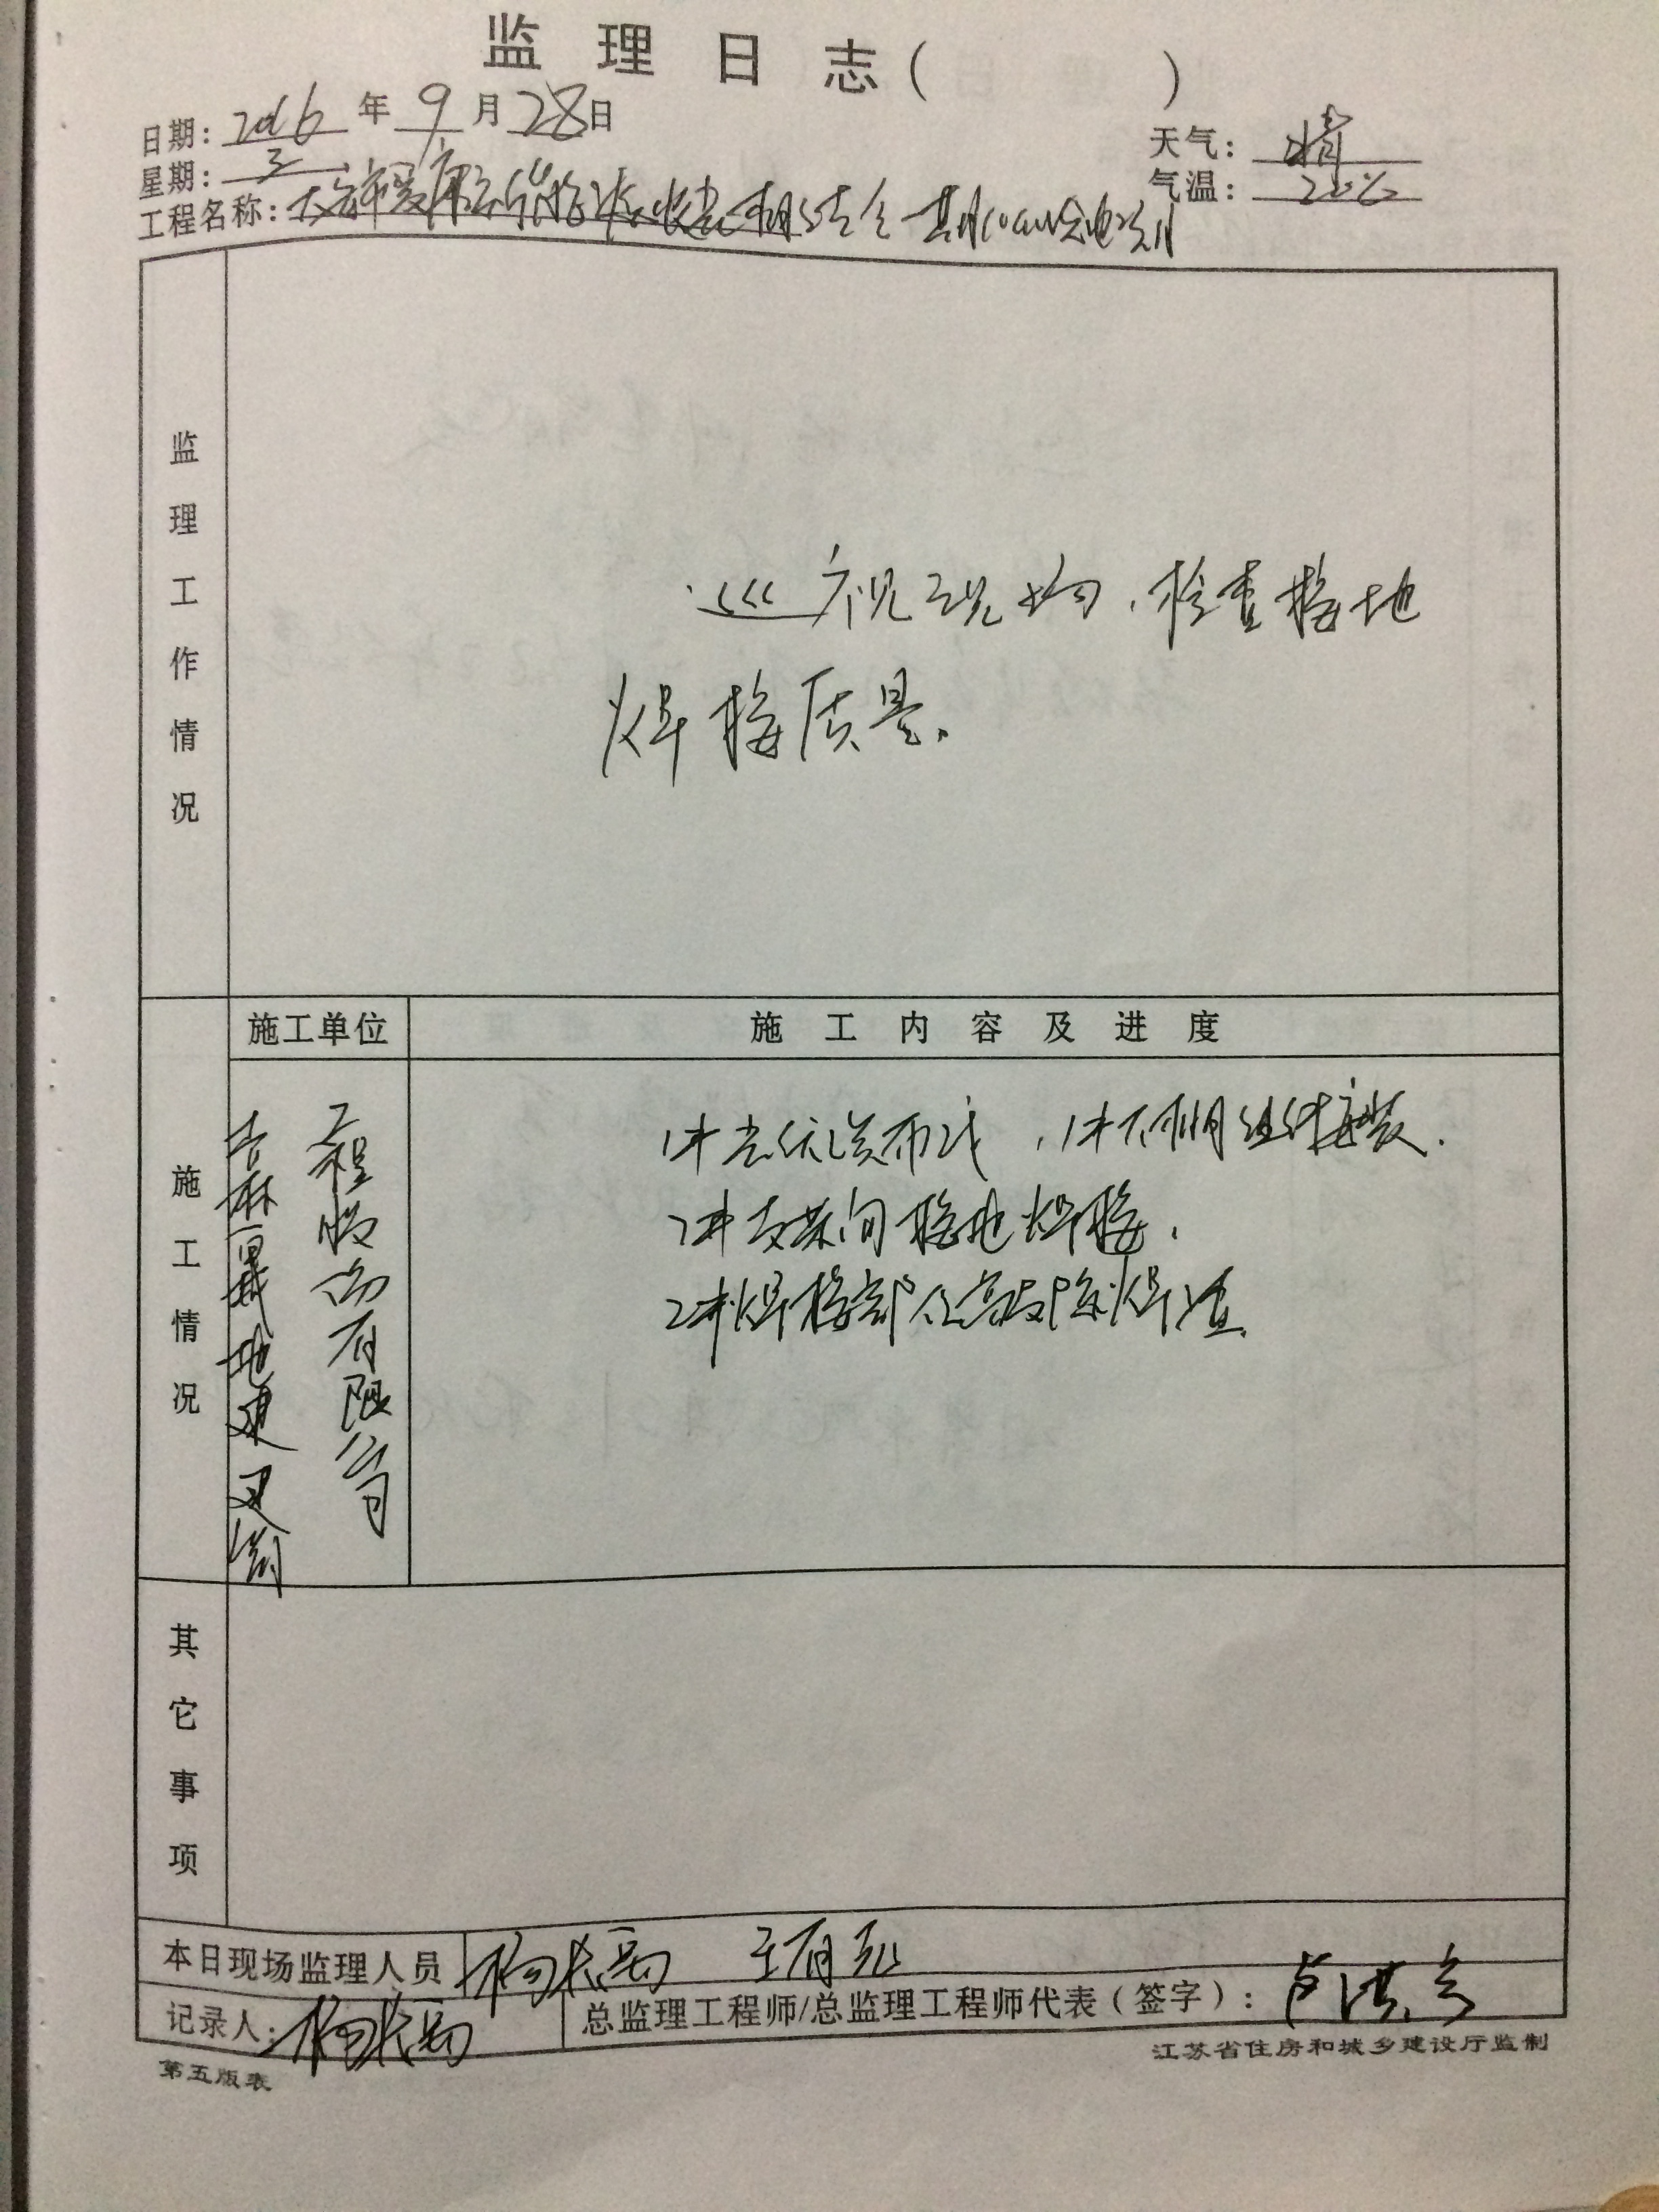 监理日志( )
日期: 2016 年 9 月 28 日
天气: 晴
星期: 三
气温: 20℃
工程名称: 大安市 相结合一期10MW
监理工作情况
巡视现场,检查接地
焊接质量.
施工情况
施工单位
施工内容及进度
吉林 地建 工程 有限公司
1# 布线, 1# 组件安装.
2#支架间接地焊接.
2#焊接部位 除焊渣.
其它事项
本日现场监理人员 杨
记录人: 杨
总监理工程师/总监理工程师代表(签字): 卢洪
第五版表
江苏省住房和城乡建设厅监制